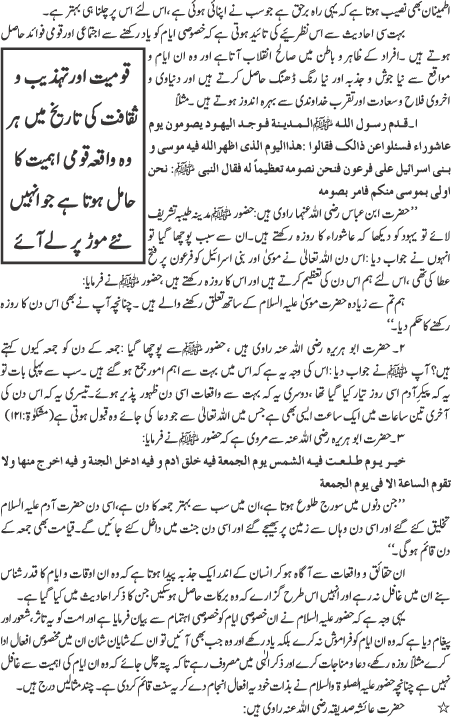 اطمینان بھی نصیب ہوتا ہے کہ یہی راہ برحق ہے جو سب نے اپنائی ہوئی ہے، اس لئے اس پر چلنا ہی بہتر ہے۔
بہت سی احادیث سے اس نظریئے کی تائید ہوتی ہے کہ خصوصی ایام کو یاد رکھنے سے اجتماعی اور قومی فوائد حاصل
ہوتے ہیں۔ افراد کے ظاہر و باطن میں صالح انقلاب آتا ہے اور وہ ان ایام و
مواقع سے نیا جوش و جذبہ اور نیا رنگ ڈھنگ حاصل کرتے ہیں اور دنیاوی و
اخروی فلاح و سعادت اور تقرب خداوندی سے بہرہ اندوز ہوتے ہیں۔ مثلاً
قومیت اور تہذیب و
ثقافت کی تاریخ میں ہر
وہ واقعہ قومی اہمیت کا
حامل ہوتا ہے جو انہیں
نئے موڑ پر لے آئے
۱۔ قدم رسول اللہ ﷺ المدینة فوجد الیہود یصومون یوم
عاشوراء فسئلوا عن ذالک فقالوا: ھذا الیوم الذی اظھر اللہ فیہ موسی و
بنی اسرائیل علی فرعون فنحن نصومہ تعظیماً لہ فقال النبی ﷺ: نحن
اولی بموسی منکم فامر بصومہ
’’حضرت ابن عباس رضی اللہ عنہما راوی ہیں: حضور ﷺ مدینہ طیبہ تشریف
لائے تو یہود کو دیکھا کہ عاشوراء کا روزہ رکھتے ہیں۔ ان سے سبب پوچھا گیا تو
انہوں نے جواب دیا: اس دن اللہ تعالیٰ نے موسیٰ اور بنی اسرائیل کو فرعون پر فتح
عطا کی تھی، اس لئے ہم اس دن کی تعظیم کرتے ہیں اور اس کا روزہ رکھتے ہیں، حضور ﷺ نے فرمایا:
ہم تم سے زیادہ حضرت موسیٰ علیہ السلام کے ساتھ تعلق رکھنے والے ہیں۔ چنانچہ آپ نے بھی اس دن کا روزہ
رکھنے کا حکم دیا۔‘‘
۲۔ حضرت ابو ہریرہ رضی اللہ عنہ راوی ہیں، حضور ﷺ سے پوچھا گیا: جمعہ کے دن کو جمعہ کیوں کہتے
ہیں؟ آپ ﷺ نے جواب دیا: اس کی وجہ یہ ہے کہ اس میں بہت سے اہم امور جمع ہو گئے ہیں۔ سب سے پہلی بات تو
یہ کہ پیکر آدم اسی روز تیار کیا گیا تھا، دوسری یہ کہ بہت سے واقعات اسی دن ظہور پذیر ہوئے۔ تیسری یہ کہ اس دن کی
آخری تین ساعات میں ایک ساعت ایسی بھی ہے جس میں اللہ تعالیٰ سے جو دعا کی جائے وہ قبول ہوتی ہے (مشکوٰۃ: ۱۲۱)
۳۔ حضرت ابو ہریرہ رضی اللہ عنہ سے مروی ہے کہ حضور ﷺ نے فرمایا:
خیر یوم طلعت فیہ الشمس یوم الجمعة فیہ خلق ادم و فیہ ادخل الجنة و فیہ اخرج منھا ولا
تقوم الساعة الا فی یوم الجمعة
’’جن دنوں میں سورج طلوع ہوتا ہے، ان میں سب سے بہتر جمعہ کا دن ہے، اسی دن حضرت آدم علیہ السلام
تخلیق کئے گئے اور اسی دن وہاں سے زمین پر بھیجے گئے اور اسی دن جنت میں داخل کئے جائیں گے۔ قیامت بھی جمعہ کے
دن قائم ہو گی۔‘‘
ان حقائق و واقعات سے آگاہ ہو کر انسان کے اندر ایک جذبہ پیدا ہوتا ہے کہ وہ ان اوقات و ایام کا قدر شناس
بنے ان میں غافل نہ رہے اور انہیں اس طرح گزارے کہ وہ برکات حاصل ہو سکیں جن کا ذکر احادیث میں کیا گیا ہے۔
یہی وجہ ہے کہ حضور علیہ السلام نے ان خصوصی ایام کو خصوصی اہتمام سے بیان فرمایا ہے اور امت کو یہ تاثر، شعور اور
پیغام دیا ہے کہ وہ ان ایام کو فراموش نہ کرے بلکہ یاد رکھے اور وہ جب بھی آئیں تو ان کے شایان شان ان میں مخصوص افعال ادا
کرے مثلاً روزہ رکھے، دعا و مناجات کرے اور ذکر الٰہی میں مصروف رہے تا کہ پتہ چل جائے کہ وہ ان ایام کی اہمیت سے غافل
نہیں ہے چنانچہ حضور علیہ الصلوٰۃ والسلام نے بذات خود یہ افعال انجام دے کر یہ سنت قائم کر دی ہے۔ چند مثالیں درج ہیں۔
☆ حضرت عائشہ صدیقہ رضی اللہ عنہا راوی ہیں: